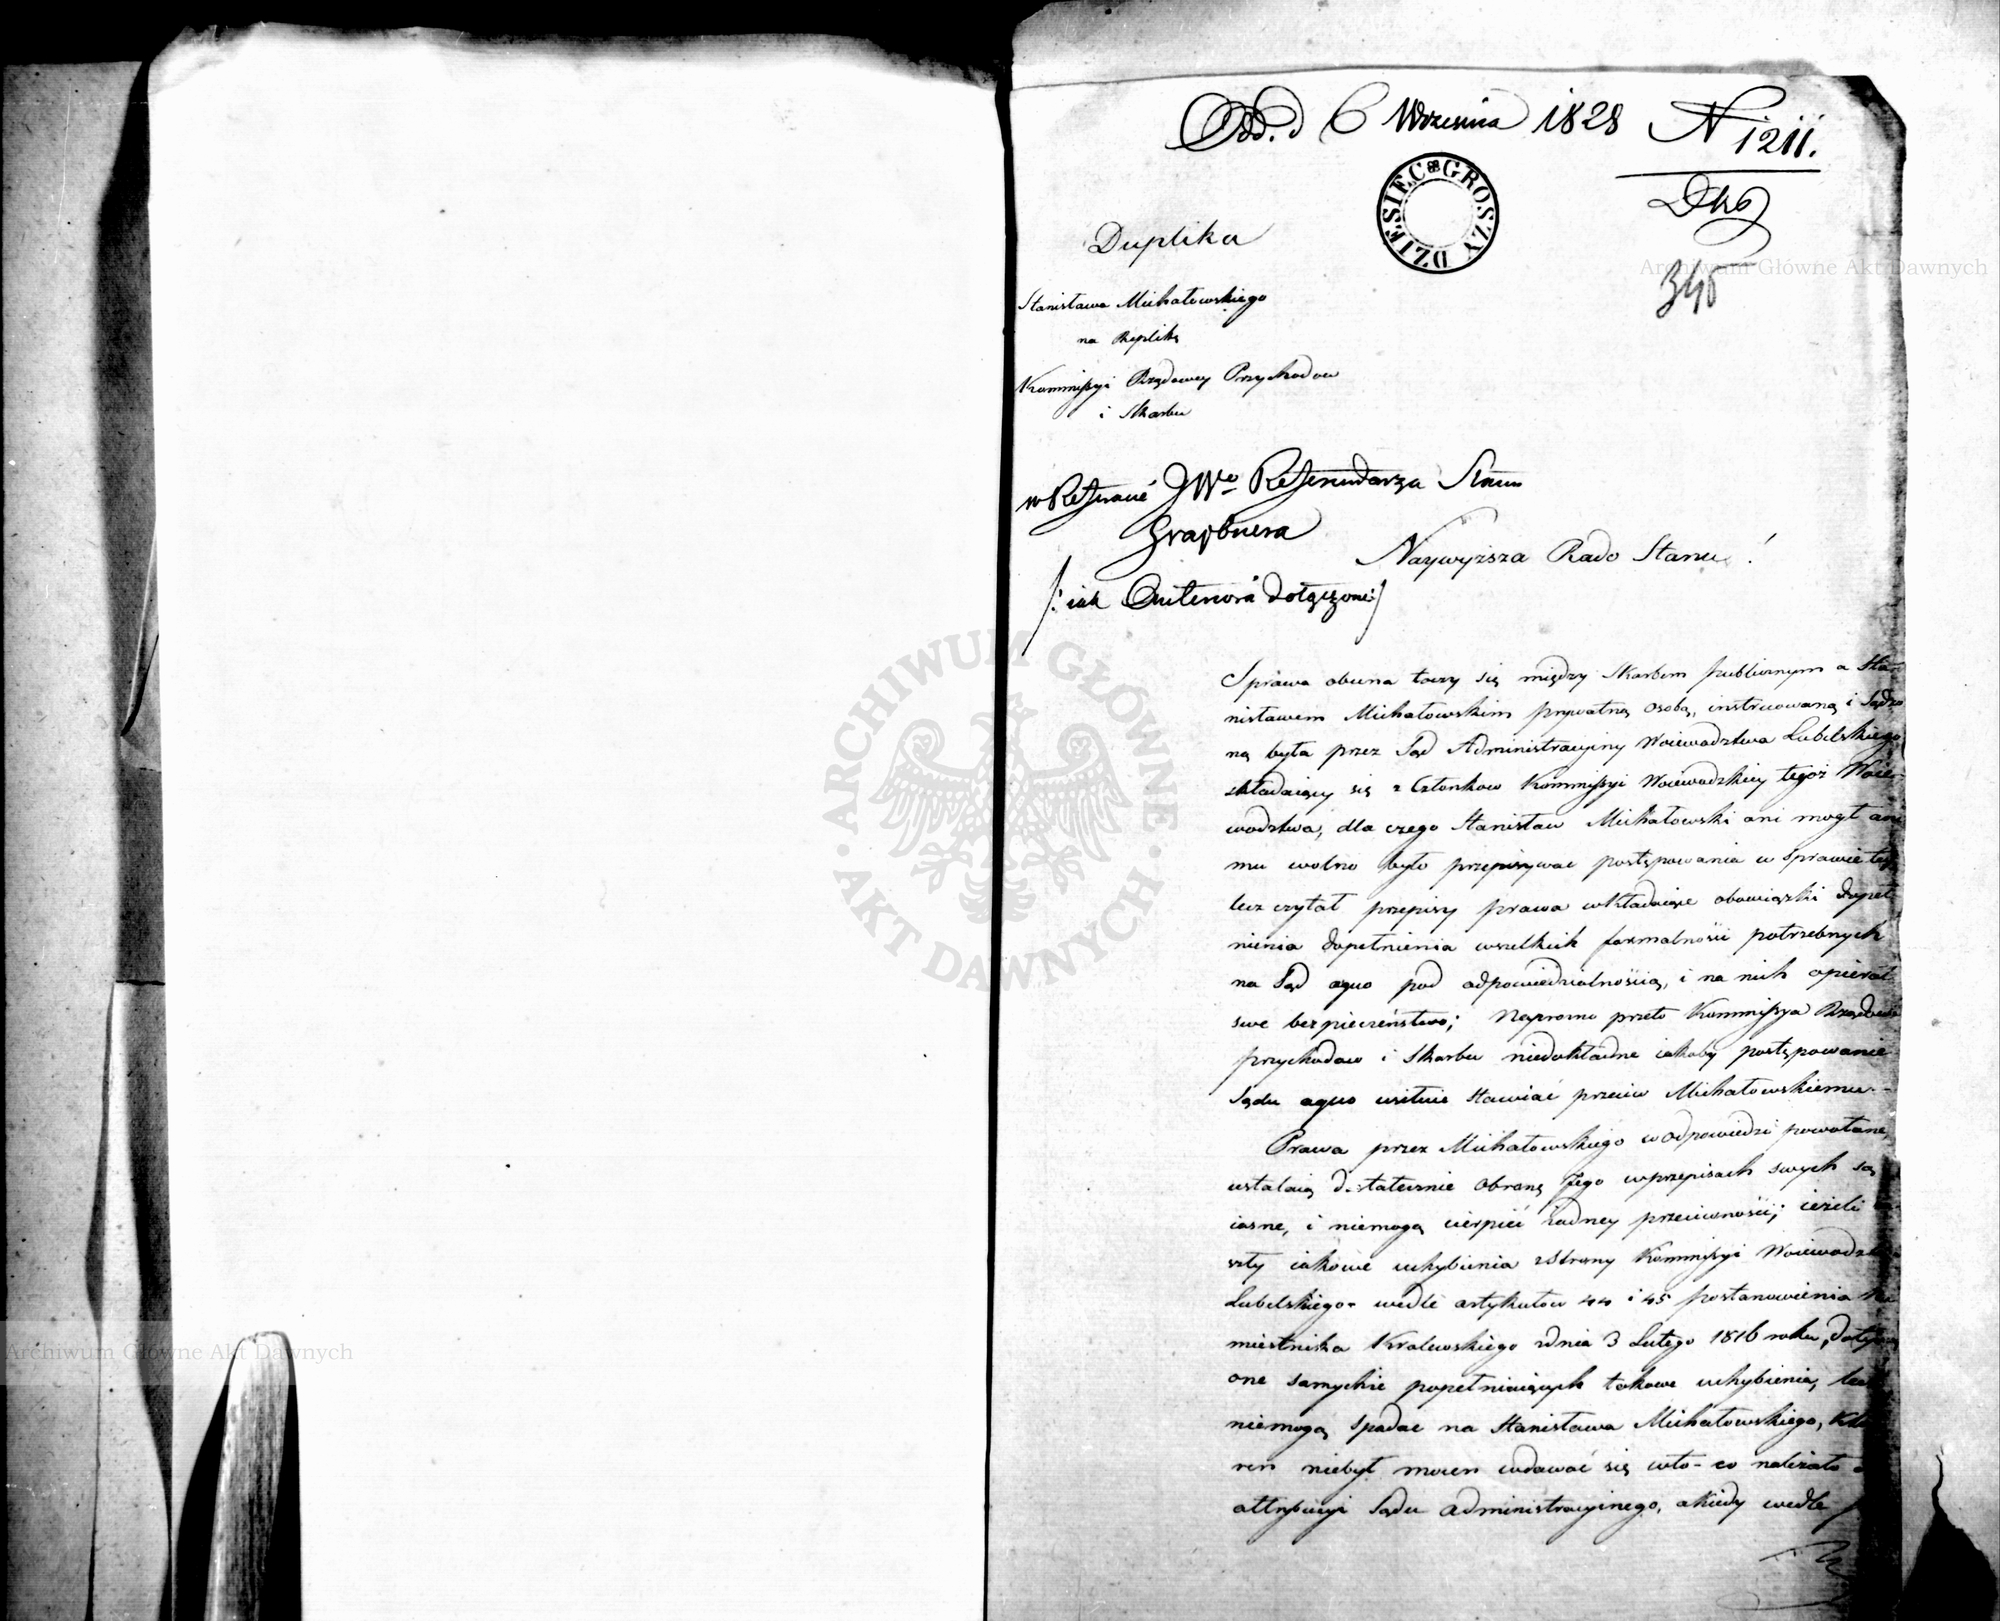 Odd. d 6 Września 1828 N 1211.
DZIESIĘC GROSZY
Duplika
Stanisława Michałowskiego
na Replikę
Kommissyi Rządowey Przychodow
i Skarbu
w Referacie JWo Referendarza Stanu
Grajbnera
/: iak Anteriora dołączone :/
Naywyższa Rado Stanu !
Sprawa obecna toczy się między Skarbem publicznym a Sta-
nisławem Michałowskim prywatną osobą, instruowaną i Sądzo
ną była przez Sąd Administracyiny Woiewodztwa Lubelskiego
składaiący się z Członkow Kommissyi Woiewodzkiey tegoż Woie-
wodztwa, dla czego Stanisław Michałowski ani mogł ani
mu wolno było przepisywac postępowania w Sprawie tey
lecz czytał przepisy prawa wkładaiące obowiązki dopeł
nienia dopełnienia wszelkich formalności potrzebnych
na Sąd aquo pod odpowiedzialnością, i na nich opierał
swe bezpieczeństwo; Naprozno przeto Kommissya Rządowa
przychodow i Skarbu niedokładne iakoby postępowanie
Sądu aquo usiłuie stawiać przeciw Michałowskiemu.-
Prawa przez Michałowskiego w odpowiedzi powołane,
ustalaią dostatecznie obronę Jego w przepisach swych są
iasne, i niemogą cierpieć żadney przeciwności; ieżeli
szły iakowe uchybienia zStrony Kommissyi Woiewodztwa
Lubelskiego- wedle artykułow 44 i 45 postanowienia Na
miestnika Krolewskiego zdnia 3 Lutego 1816 roku, dotyczą
one samychże popełniaiących takowe uchybienia, lecz
niemogą Spadac na Stanisława Michałowskiego, Kto
ren niebył mocen wdawać się wto- co należało
attrybucyi Sądu administracyinego, akiedy wedle
Archiwum Główne Akt Dawnych
ARCHIWUM GŁÓWNE · AKT DAWNYCH ·
Archiwum Główne Akt Dawnych